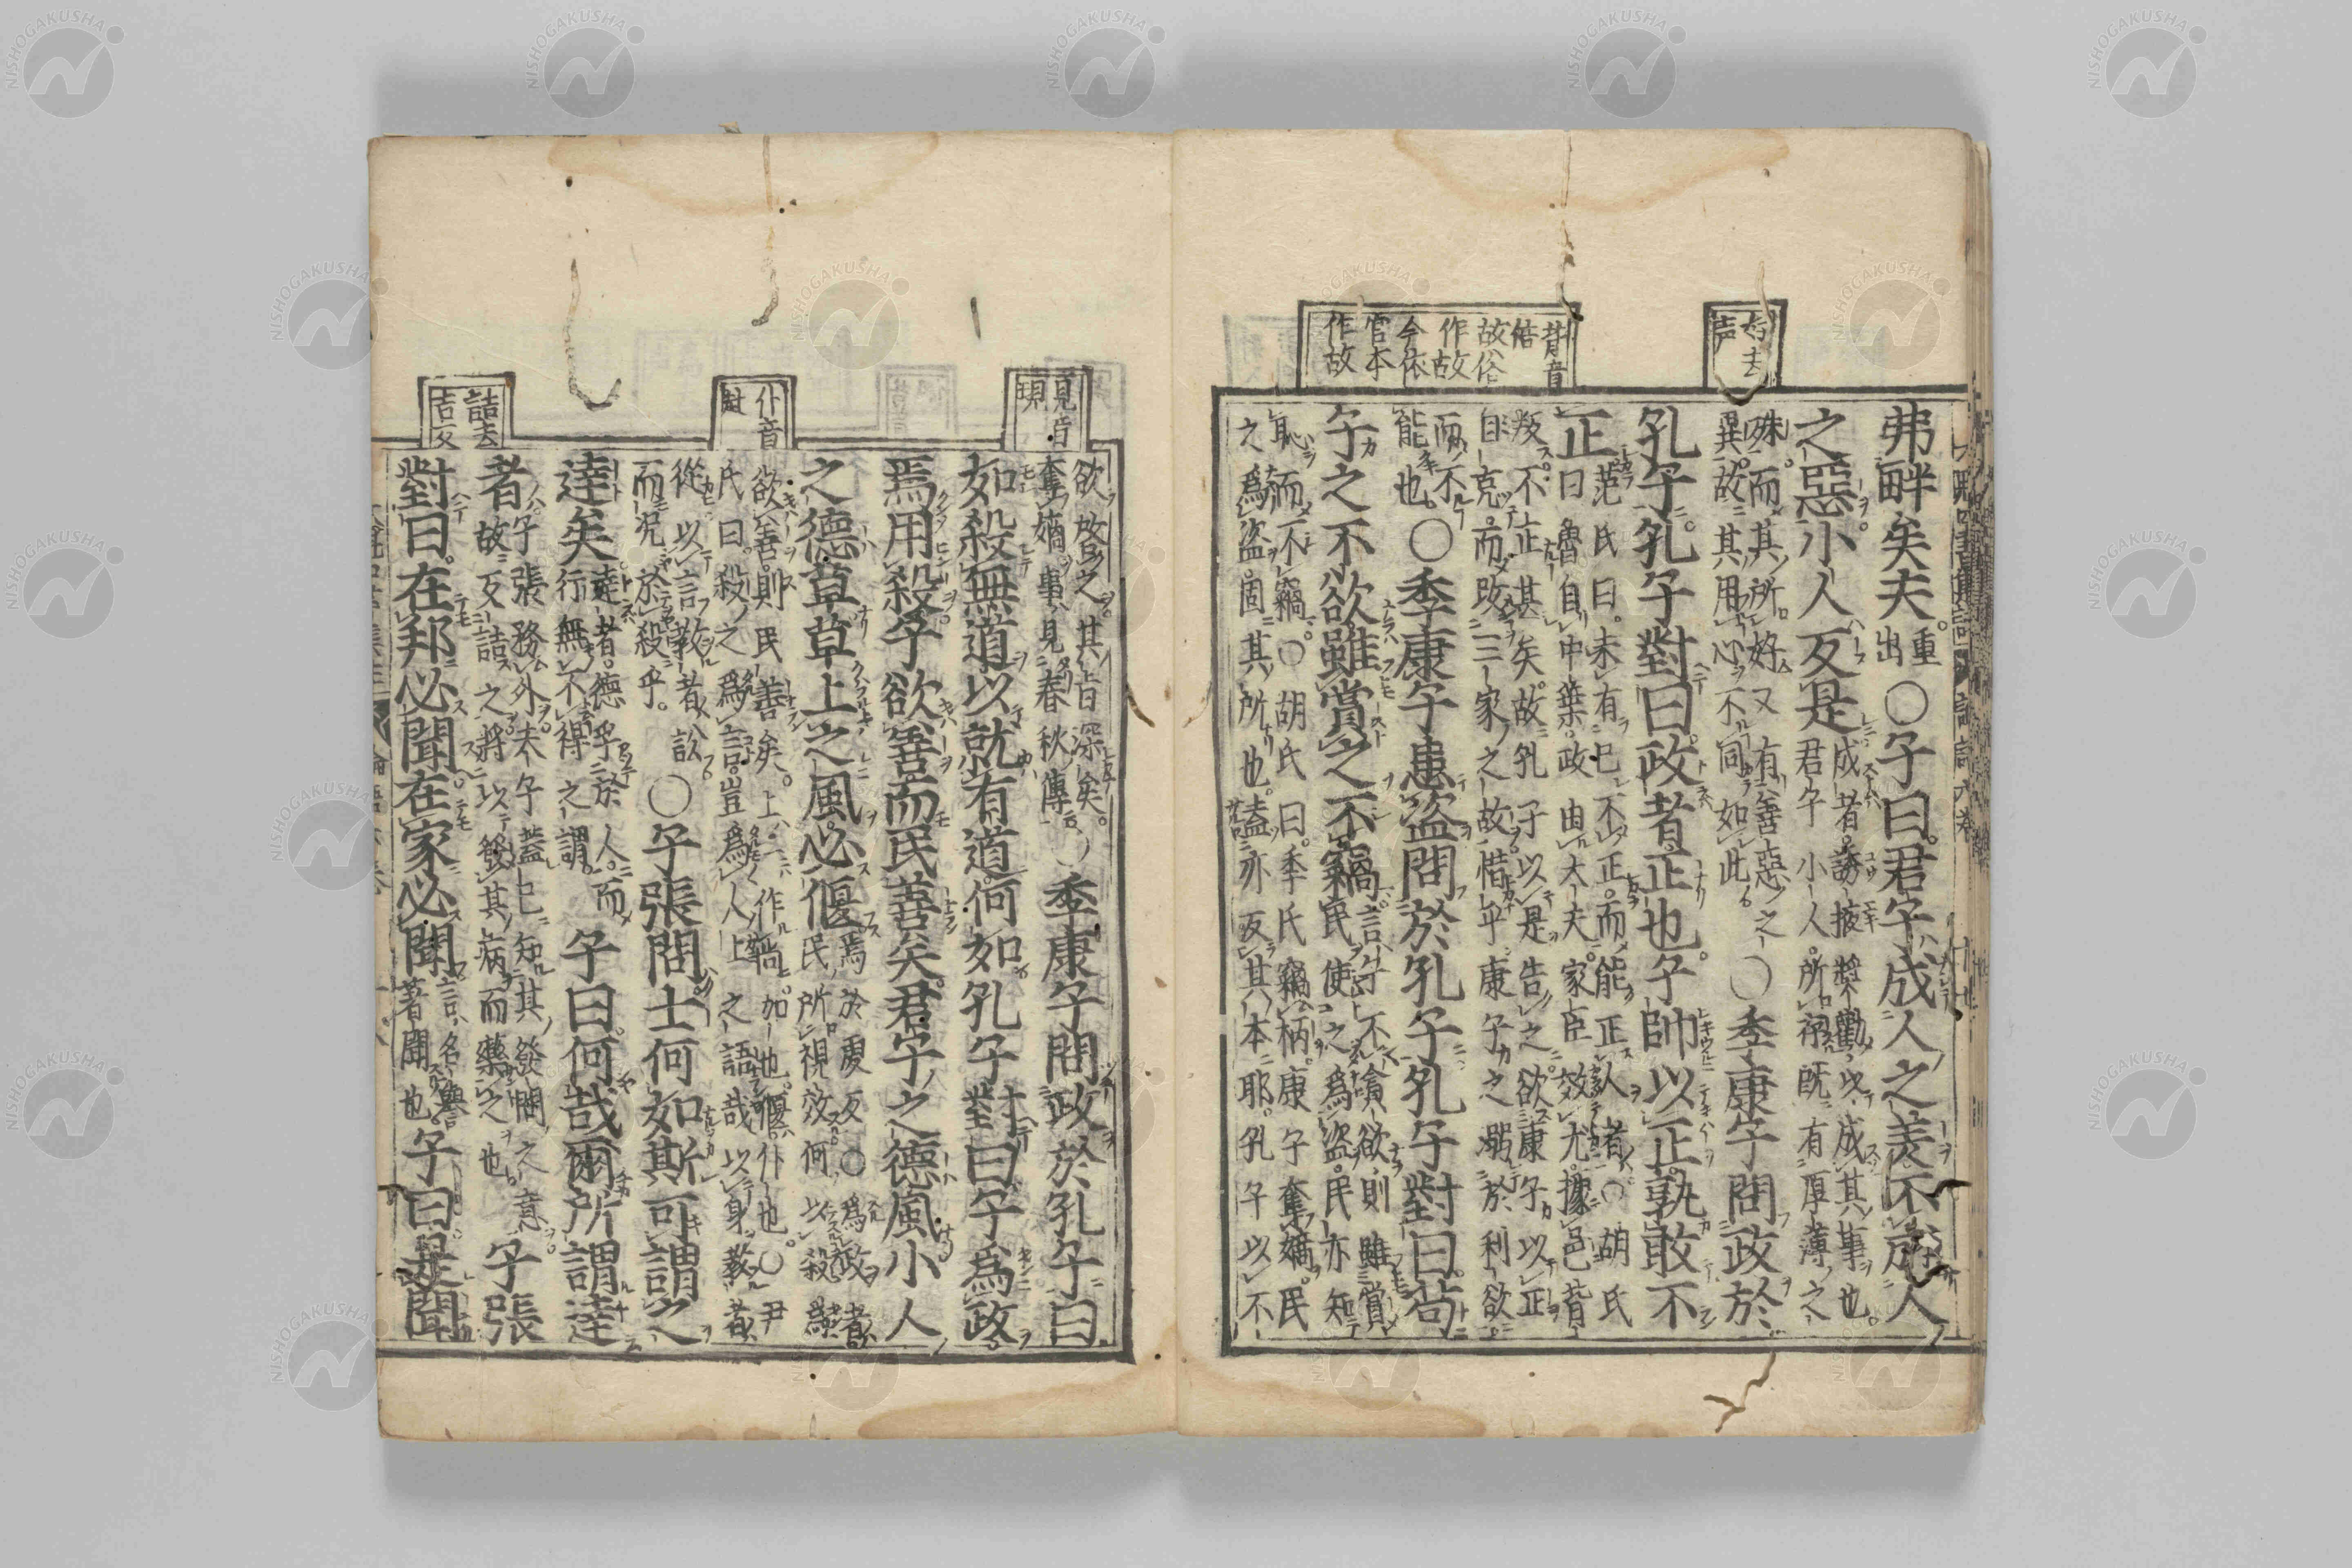 好去
声
弗畔矣夫
重
出
○子曰君子成人之美不成人
之惡小人反是
成者誘掖奬勸以成其事也
君子小人所存既有厚薄之
殊而其所好又有善惡之
異故其用心不同如此
○季康子問政於
孔子孔子對曰政者正也子帥以正孰敢不
正
范氏曰未有己不正而能正人者○胡氏
曰魯自中葉政由大夫家臣效尤據邑背
叛不正甚矣故孔子以是告之欲康子以正
自克而改三家之故惜乎康子之溺於利欲
背音
故俗
作故
今依
官本
作故
而不
能也
○季康子患盜問於孔子孔子對曰苟
子之不欲雖賞之不竊
言子不貪欲則雖賞
民使之爲盜民亦知
恥而不竊○胡氏曰季氏竊柄康子奪嫡民
之爲盜固其所也盍亦反其本耶孔子以不
見音
現
欲啓之其旨深矣
奪嫡事見春秋傳
○季康子問政於孔子曰
如殺無道以就有道何如孔子對曰子爲政
焉用殺子欲善而民善矣君子之德風小人
之德草草上之風必偃
焉於虔反○爲政者
民所視效何以殺爲
仆音
欲善則民善矣上一作尚加也偃仆也○尹
氏曰殺之爲言豈爲人上之語哉以身教者
從以言教者訟
而況於殺乎
○子張問士何如斯可謂之
達矣
達者德孚於人而
行無不得之謂
子曰何哉爾所謂達
詰去
吉反
者
子張務外夫子蓋已知其發問之意
故反詰之將以發其病而藥之也
子張
對曰在邦必聞在家必聞
言名譽
著聞也
子曰是聞
NISHOGAKUSHA